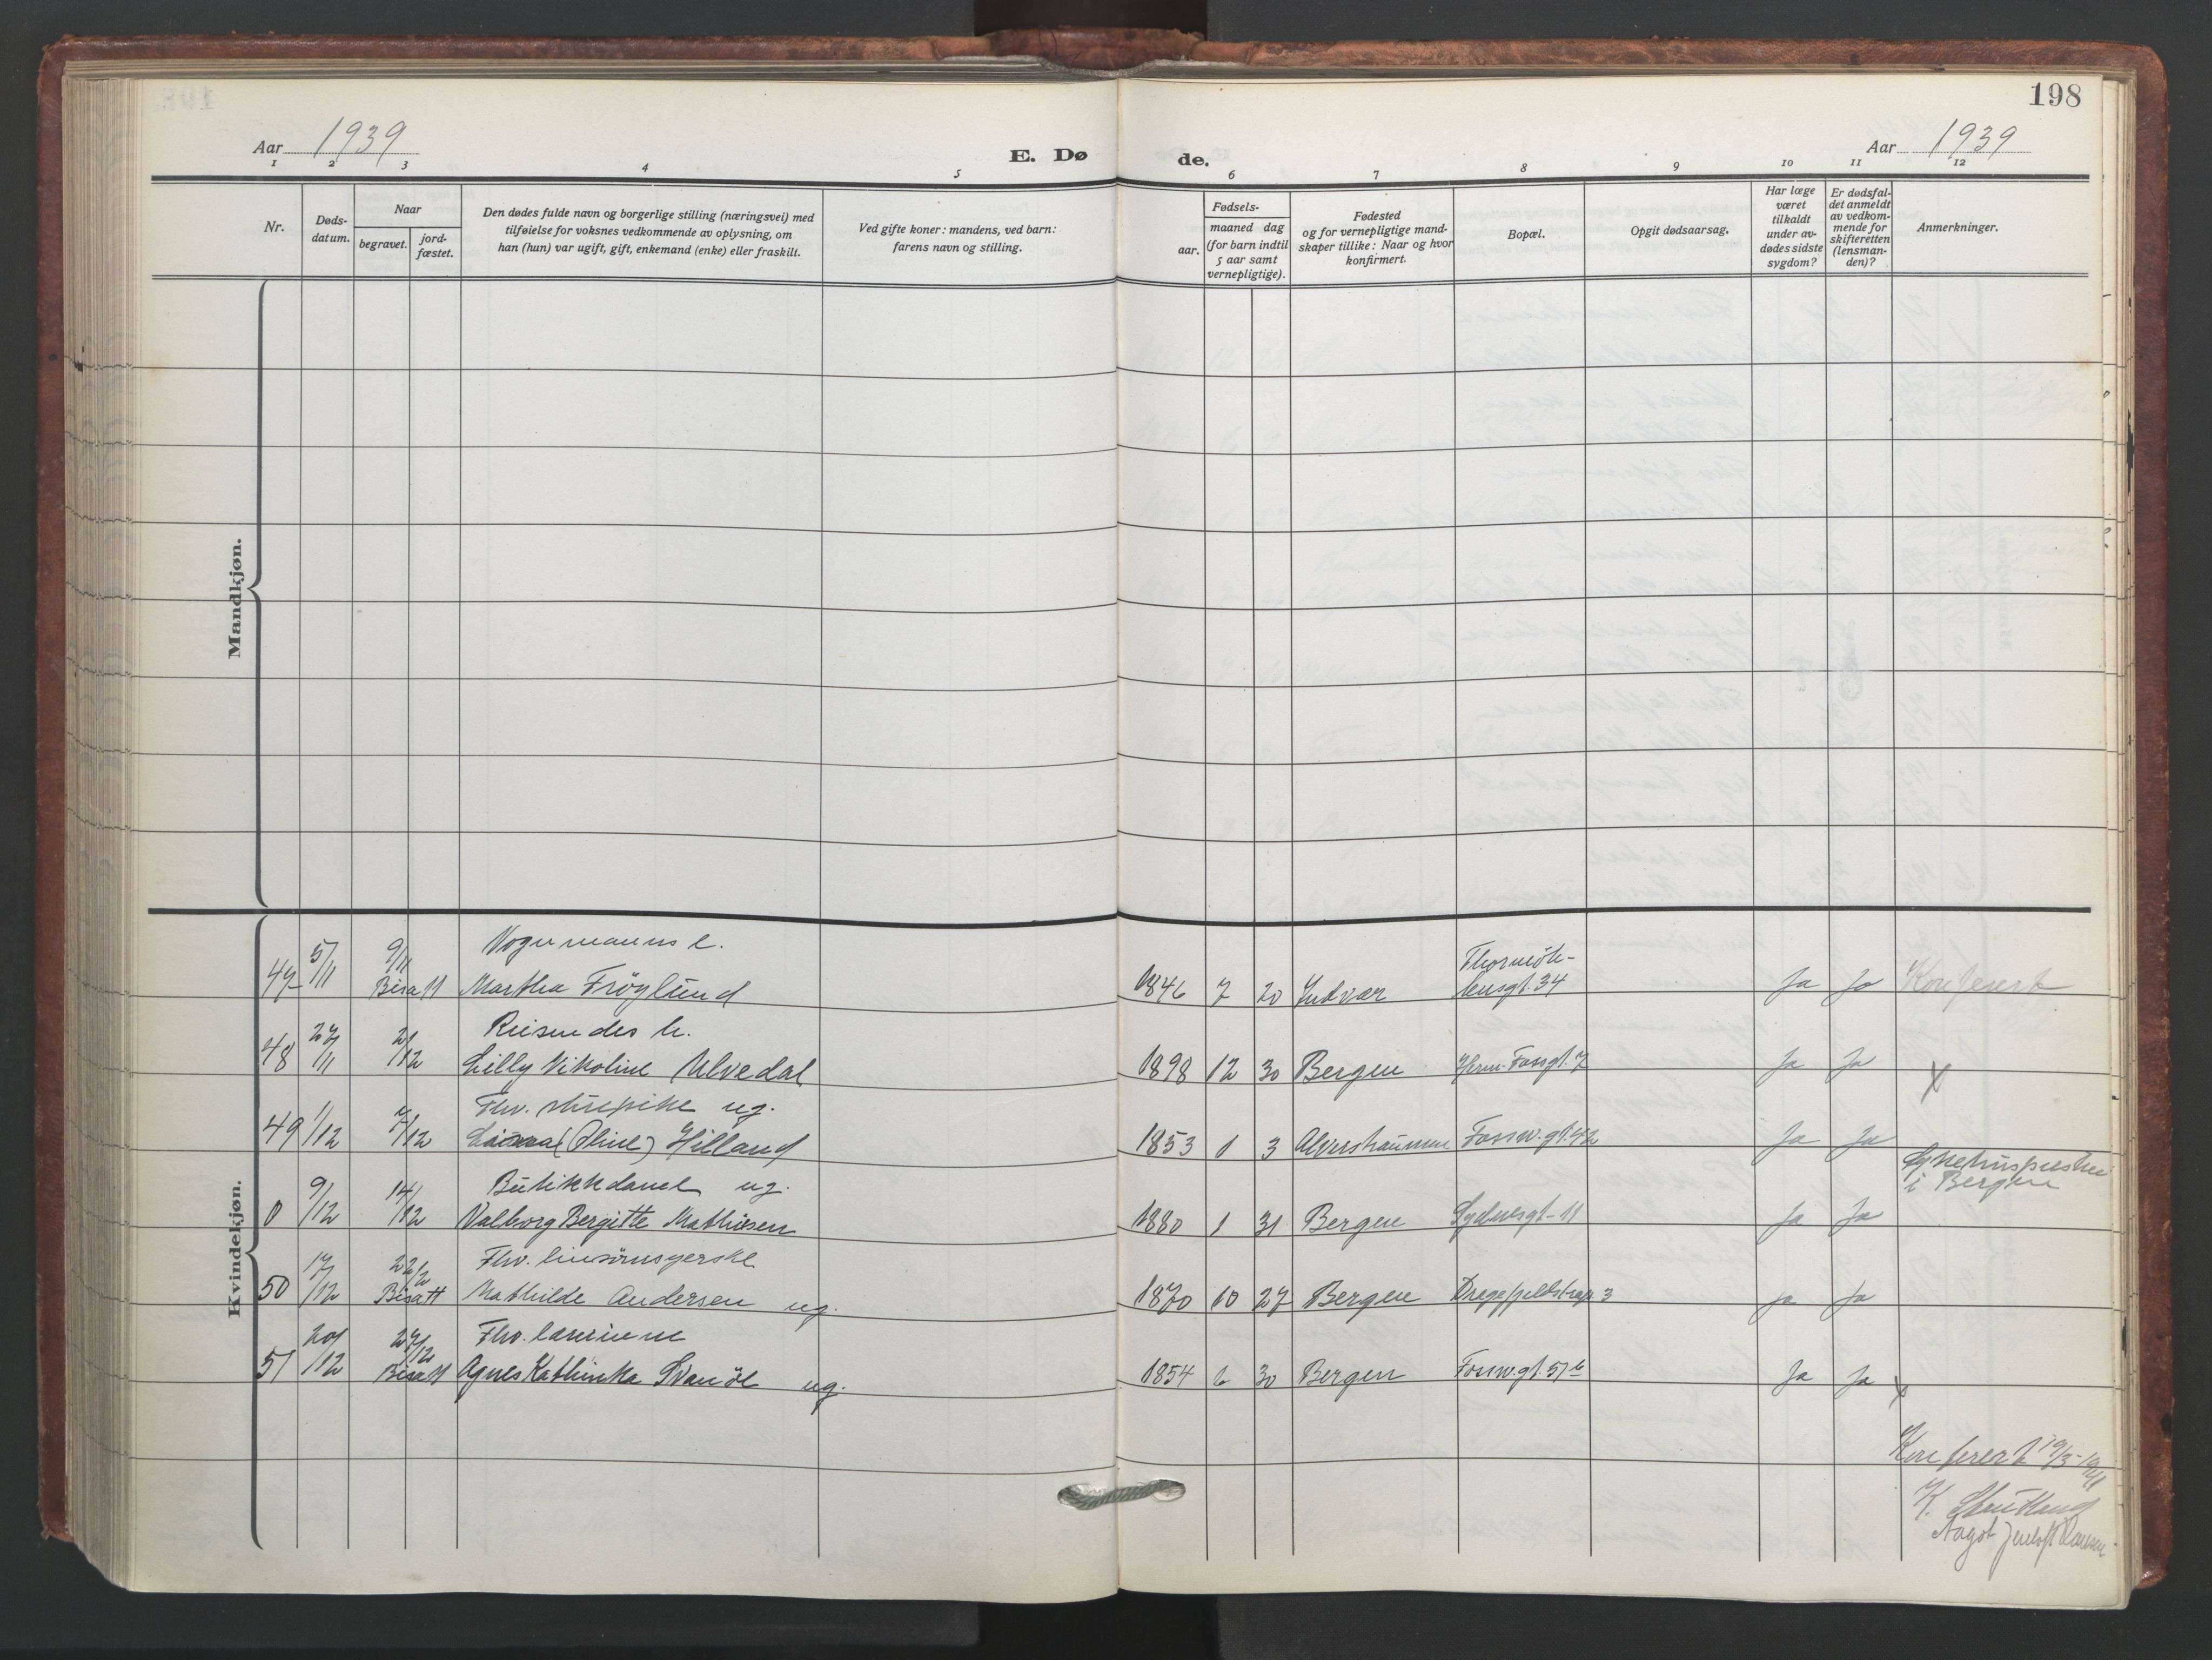 198
Aar 1939
E. Dø
de.
Aar 1939
1 2 3 4 5 6 7 8 9 10 11 12
Nr.
Døds-
datum.
Naar
begravet.
jord-
fæstet.
Den dødes fulde navn og borgerlige stilling (næringsvei) med
tilføielse for voksnes vedkommende av oplysning, om
han (hun) var ugift, gift, enkemand (enke) eller fraskilt.
Ved gifte koner: mandens, ved barn:
farens navn og stilling.
Fødsels-
aar.
maaned dag
(for barn indtil
5 aar samt
vernepligtige).
Fødested
og for vernepligtige mand-
skaper tillike: Naar og hvor
konfirmert.
Bopæl.
Opgit dødsaarsag.
Har læge
været
tilkaldt
under av-
dødes sidste
sygdom?
Er dødsfal-
det anmeldt
av vedkom-
mende for
skifteretten
(lensman-
den)?
Anmerkninger.
Mandkjøn.
Kvindekjøn.
Vognmanns e.
47 5/11 9/11 Bisatt Martha Frøylund 1846 7 20 Thormöh-
lensgt. 34 Ja Ja Konferert
Reisendes h.
48 27/11 2/12 Lilly Nikoline Ulvedal 1898 12 30 Bergen Herm. Fossgt. 7 Ja Ja x
Fhv. ug.
49 1/12 7/12 (Oline) Hilland 1853 1 3 Alverstraumen Fossw.gt. 42 Ja Ja
Butikkdame ug.
0 9/12 14/12 Valborg Bergitte Mathisen 1880 1 31 Bergen Sydnesgt. 11 Ja Ja Sykehuspresten
i Bergen
Fhv. linsømsyerske
50 17/12 22/12 Bisatt Mathilde Andersen ug. 1870 10 27 Bergen Dragefjeldstrap. 3 Ja Ja
Fhv. lærerinne
51 20/12 27/12 Bisatt Agnes Kathinka Svanöe ug. 1854 6 30 Bergen Fossw.gt. 51 b Ja Ja x
Konferert 19/3-1941
K.
Aagot